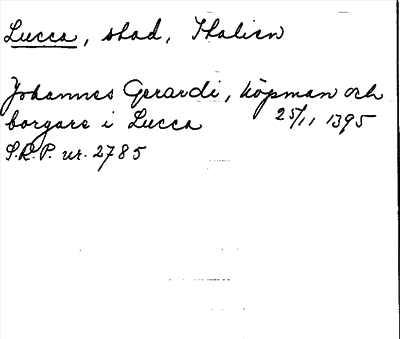 Lucca, stad, Italien
Johannes Gerardi, köpman och
borgare i Lucca 25/11 1395
S.R.P. nr. 2785